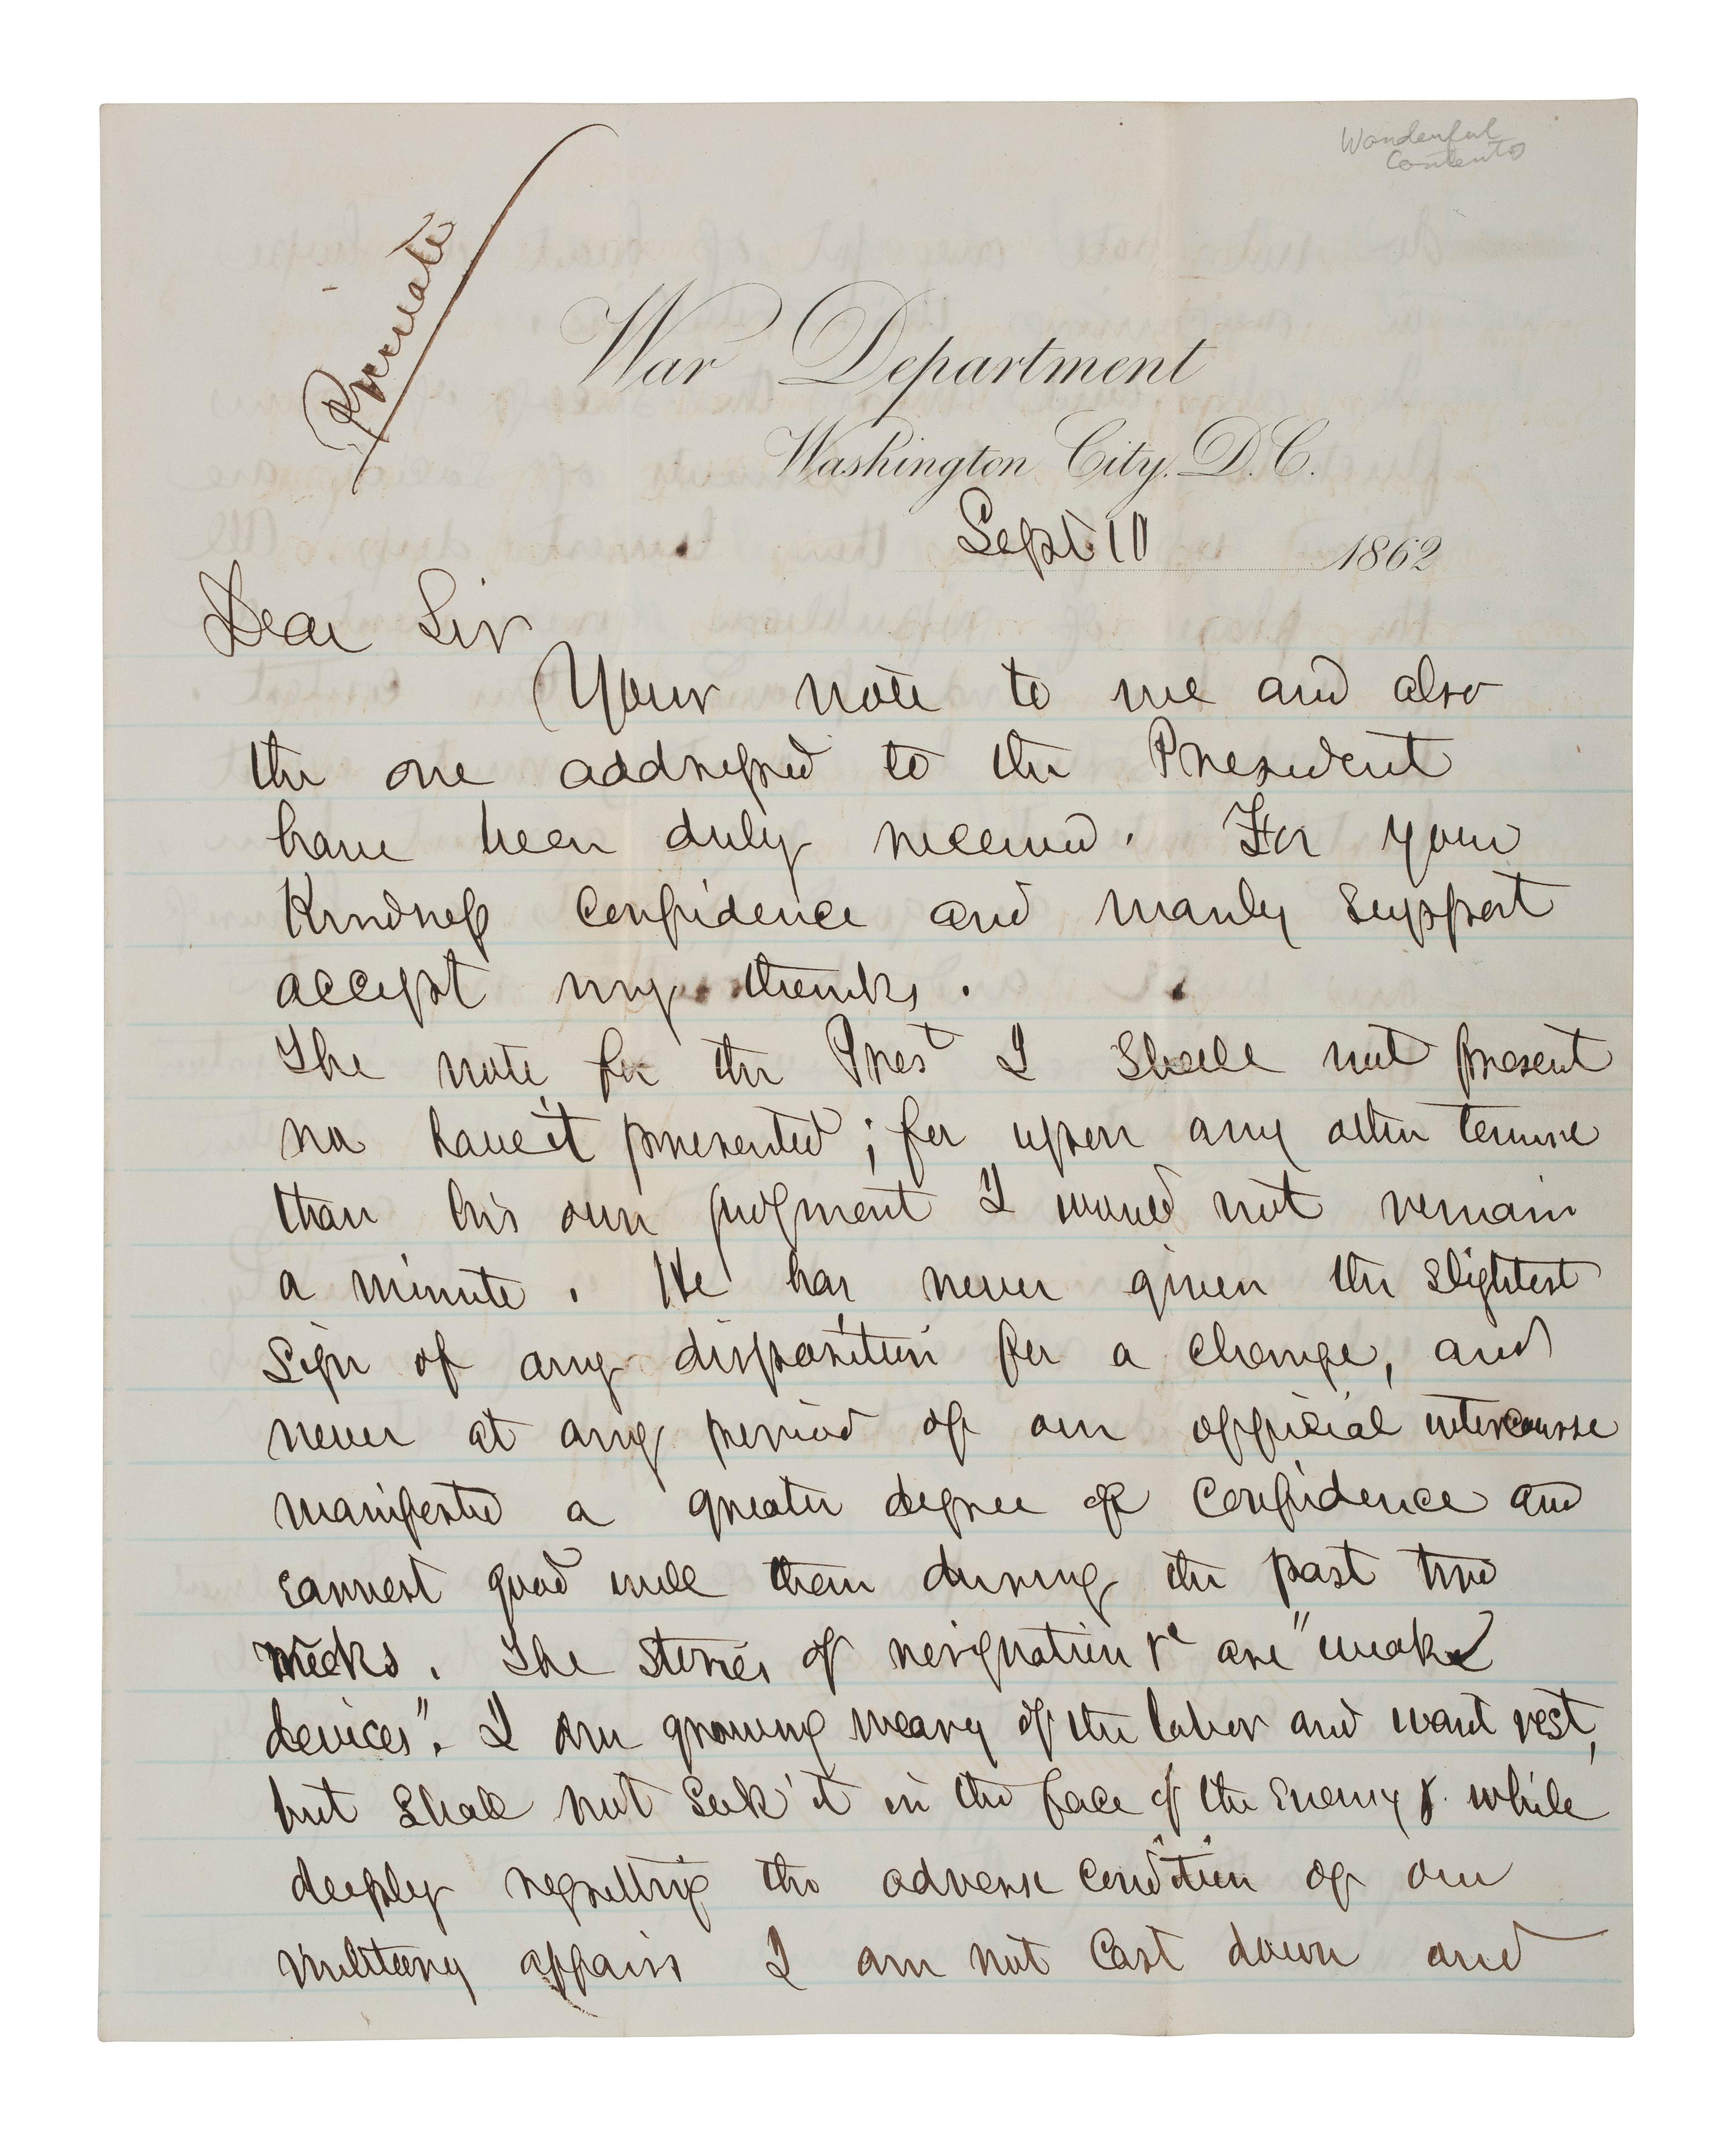 Wonderful
Contents
Private
War Department
Washington City, D.C.
Sept. 10 1862
Dear Sir
Your note to me and also
the one addressed to the President
have been duly received. For your
Kindness Confidence and manly support
accept my thanks.
The note for the Prest I shall not present
no have it presented; for upon any other tenure
than his own judgment I would not remain
a minute. He has never given the slightest
Sign of any disposition for a change, and
never at any period of our official intercourse
manifested a greater degree of Confidence and
earnest good will than during the past two
weeks. The stories of resignation &c are "weak
devices". I am growing weary of the labor and want rest,
but shall not seek it in the face of the Enemy & while
deeply regretting the adverse condition of our
military affairs I am not Cast down and